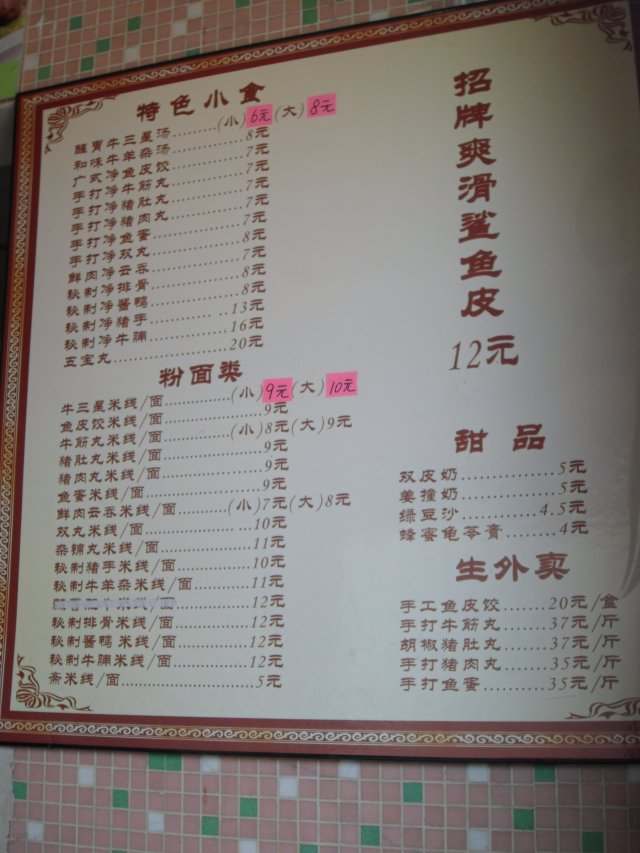 特色小食
醒胃牛三星汤.........(小)6元(大)8元
和味牛羊杂汤..............8元
广式净鱼皮饺..............7元
手打净牛筋丸..............7元
手打净猪肚丸..............7元
手打净猪肉丸..............7元
手打净鱼蛋................7元
手打净双丸................8元
鲜肉净云吞................7元
秘制净排骨................8元
秘制净酱鸭................8元
秘制净猪手............ ..13元
秘制净牛腩..............16元
五宝丸....................20元
粉面类
牛三星米线/面.............(小)9元(大)10元
鱼皮饺米线/面..................9元
牛筋丸米线/面.............(小)8元(大)9元
猪肚丸米线/面..................9元
猪肉丸米线/面..................9元
鱼蛋米线/面....................9元
鲜肉云吞米线/面..........(小)7元(大)8元
双丸米线/面.................. ...10元
杂锦丸米线/面..................11元
秘制猪手米线/面...............10元
秘制牛羊杂米线/面............11元
米线/面...............12元
秘制排骨米线/面...............12元
秘制酱鸭 米线/面..............12元
秘制牛腩米线/面...............12元
斋米线/面........................5元
招牌爽滑鲨鱼皮
12元
甜 品
双皮奶...............5元
姜撞奶...............5元
绿豆沙............4.5元
蜂蜜龟苓膏........4元
生外卖
手工鱼皮饺.......20元/盒
手打牛筋丸.......37元/斤
胡椒猪肚丸.......37元/斤
手打猪肉丸.......35元/斤
手打鱼蛋..........35元/斤